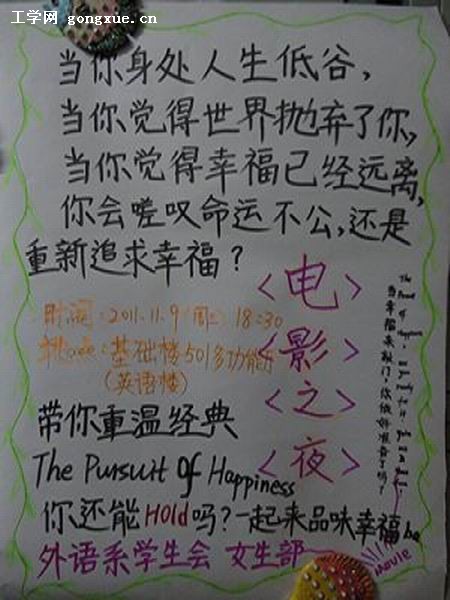 工学网 gongxue.cn
当你身处人生低谷，
当你觉得世界抛弃了你，
当你觉得幸福已经远离，
你会嗟叹命运不公，还是
重新追求幸福？
<电>
<影>
<之>
<夜>
时间：2011.11.9（周三）18:30
地点：基础楼501多功能厅
（英语楼）
带你重温经典
The Pursuit Of Happiness
你还能Hold吗？一起来品味幸福ba
外语系学生会 女生部
Movie
The Pursuit of Happiness
当幸福来敲门，你做好准备了吗？